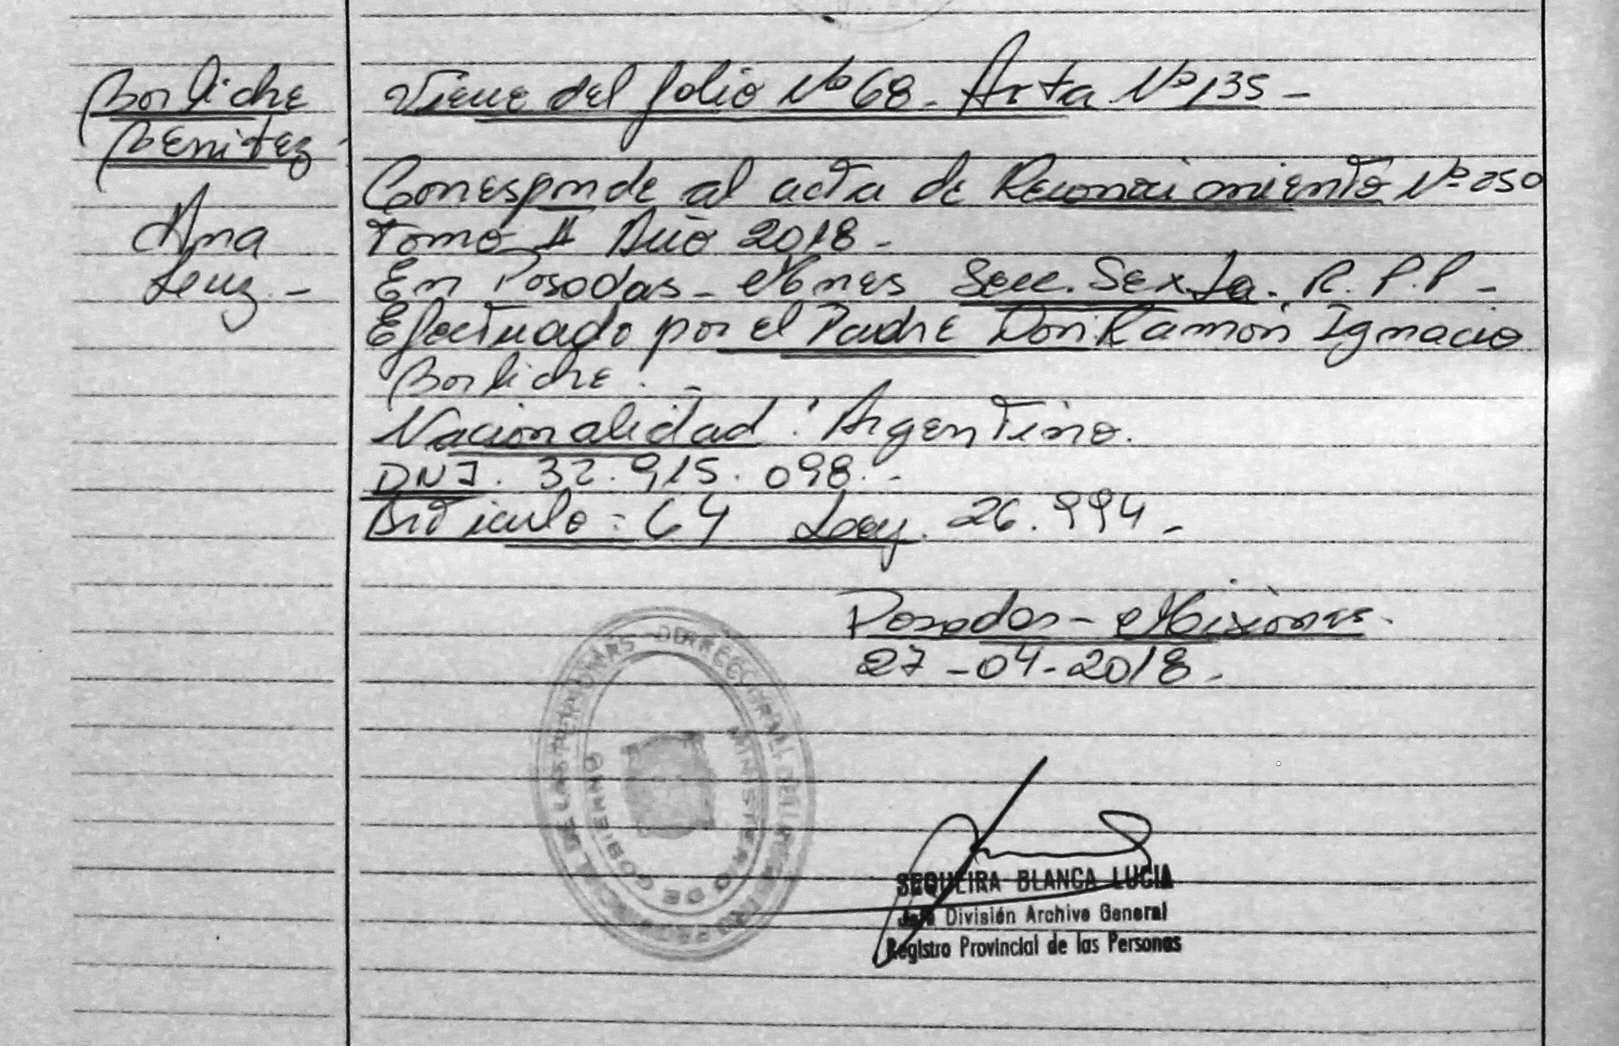 Borliche
Benitez
Ana
Luz.-
Viene del folio Nº 68. Acta Nº 135-
Corresponde al acta de Reconocimiento Nº 050
Tomo II Año 2018-
En Posadas - Mnes Secc. Sexta. R.P.P-
Efectuado por el Padre Don Ramón Ignacio
Borliche.-
Nacionalidad: Argentino.
DNI. 32.915.098.-
Articulo: 64 Ley. 26.994-
Posadas - Misiones.
27-04-2018.
MINISTERIO DE GOBIERNO
SEQUEIRA BLANCA LUCIA
Jefe División Archivo General
Registro Provincial de las Personas